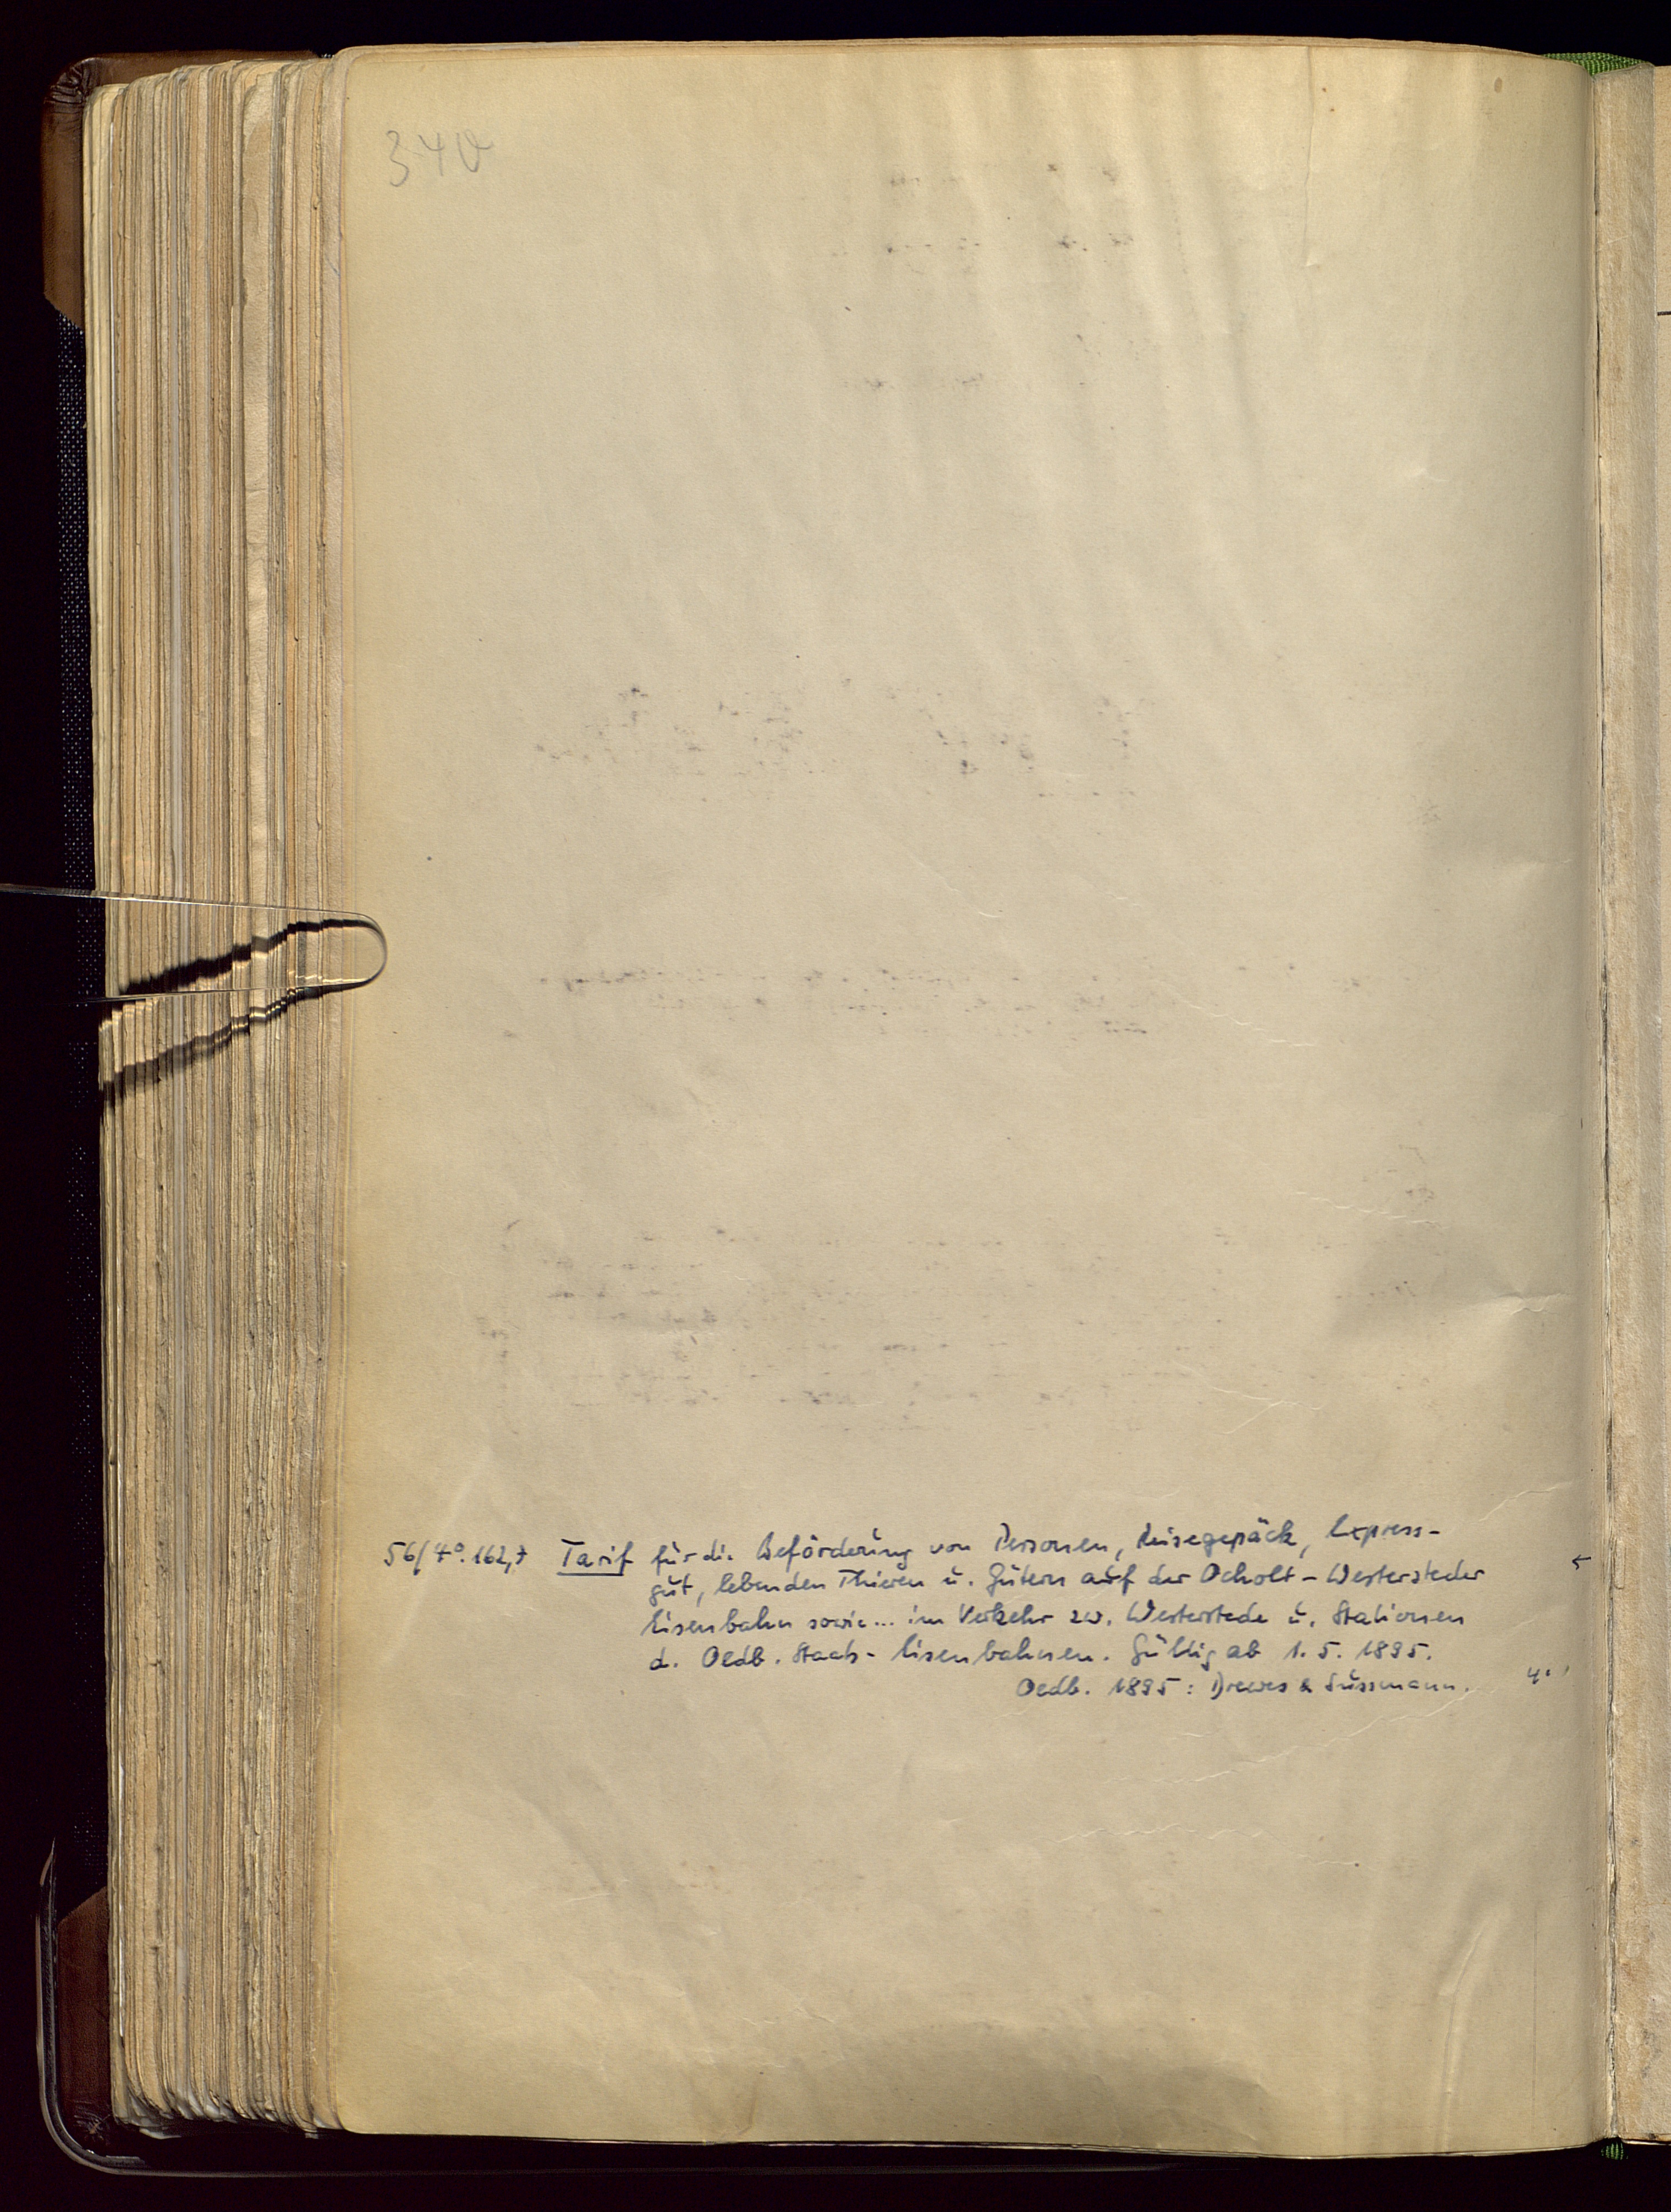 340
56/4°.162,7 Tarif für die Beförderung von Personen, Reisegepäck, Express-
gut, lebenden Thieren u. Gütern auf der Ocholt-Westersteder
Eisenbahn sowie... im Verkehr zw. Westerstede u. Stationen
d. Oldb. Staats-Eisenbahnen. Gültig ab 1.5.1895.
Oldb. 1895: Drewes & Süssmann. 4°